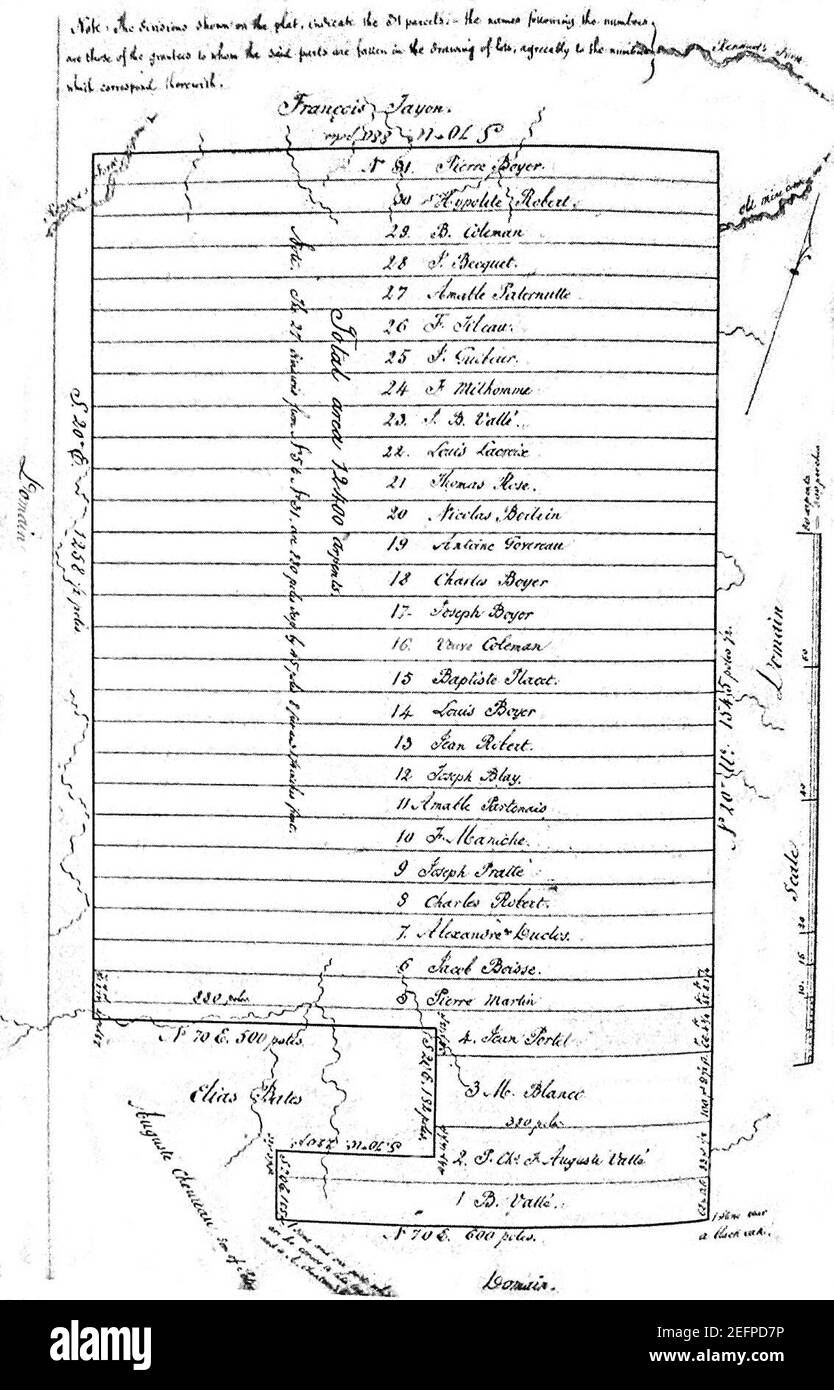 Note: The divisions shown on the plat, indicate the 31 parcels; the names following the numbers
are those of the grantees to whom the said parts are fallen in the drawing of lots, agreeably to the numbers
which correspond therewith.
Renaud's Fork
François Tayon.
S 70° W
Old mine
N 31. Pierre Boyer.
30 Hypolite Robert.
29. B. Coleman
28 J. Becquet.
27 Amable Paternutte
26 F. Tileau.
25 J. Guibour.
24 F. Milhomme
23. J. B. Vallé.
22. Louis Lacroix
21 Thomas Rose.
20 Nicolas Boilvin
19 Antoine Govereau
18 Charles Boyer
17 Joseph Boyer
16. Veuve Coleman
15 Baptiste Placet.
14 Louis Boyer
13 Jean Robert.
12 Joseph Blay.
11 Amable Partenais
10 F. Maniche.
9 Joseph Pratte
8 Charles Robert.
7. Alexandre Duclos.
6 Jacob Boisse.
5 Pierre Martin
4. Jean Portel
3 M. Blanco
320 poles
2. P. Chs. F. Auguste Vallé
1 B. Vallé.
Total area 12400 arpents.
Note. The 27 divisions from N° 5 to N° 31. are 880 poles
Domain
S 20° E.
1258 ½ poles
N 20° W. 1545 poles
Domain
Scale
20
15
10.
40
60
880 poles
N 70 E. 500 poles.
Elias Bates
S. 70 W. 220
Auguste Chouteau son of
N 70 E. 600 poles.
1 stone near
a black oak.
Domain.
alamy
Image ID: 2EFPD7P
www.alamy.com